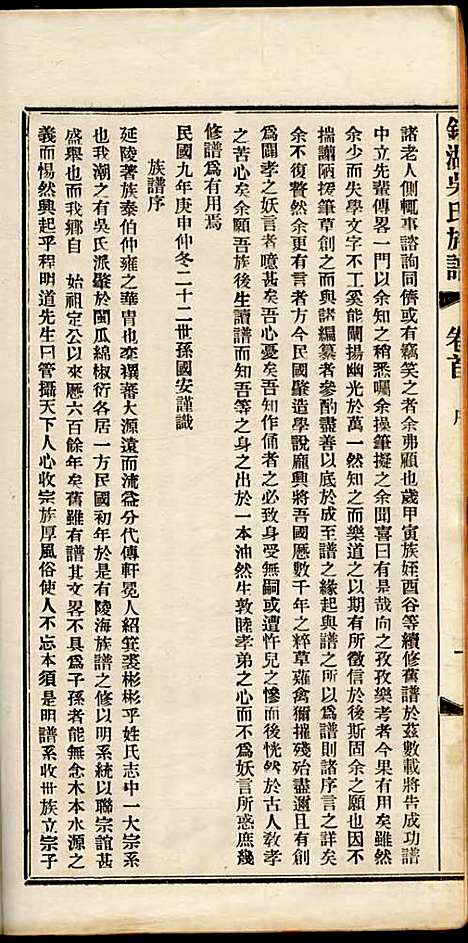 諸老人側輒事諮詢同儕或有竊笑之者余弗顧也歲甲寅族姪酉谷等續修舊譜於茲數載將告成功譜
中立先輩傳畧一門以余知之稍悉囑余操筆擬之余聞喜曰有是哉向之孜孜樂考者今果有用矣雖然
余少而失學文字不工奚能闡揚幽光於萬一然知之而樂道之以期有所徵信於後斯固余之願也因不
揣譾陋援筆草創之而與諸編纂者參酌盡善以底於成至譜之緣起與譜之所以爲譜則諸序言之詳矣
余不復贅然余更有言者方今民國肇造學說龐興將吾國歷數千年之粹草薙禽獮摧殘殆盡邇且有創
爲闢孝之妖言者噫甚矣吾心憂矣吾知作俑者之必致身受無嗣或遭忤兒之慘而後恍然於古人教孝
之苦心矣余願吾族後生讀譜而知吾等之身之出於一本油然生敦睦孝弟之心而不爲妖言所惑庶幾
修譜爲有用焉
民國九年庚申仲冬二十二世孫國安謹識
族譜序
延陵著族泰伯仲雍之華冑也奕禩蕃大源遠而流益分代傳軒冕人紹箕裘彬彬乎姓氏志中一大宗系
也我潮之有吳氏派肇於閩瓜綿椒衍各居一方民國初年於是有陵海族譜之修以明系統以聯宗誼甚
盛舉也而我鄉自 始祖定公以來歷六百餘年矣舊雖有譜其文畧不具爲子孫者能無念木本水源之
義而惕然興起乎程明道先生曰管攝天下人心收宗族厚風俗使人不忘本須是明譜系收世族立宗子
湖吳氏族譜 卷首 序